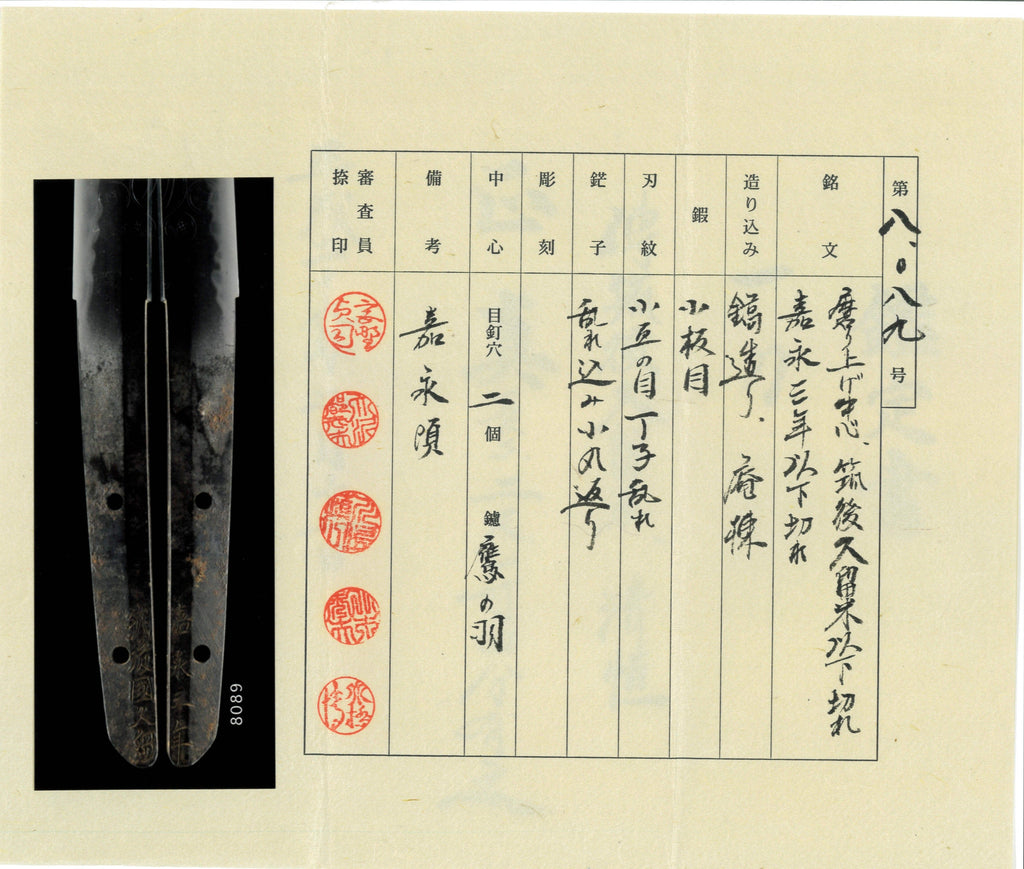 第八〇八九号
銘文
磨り上げ中心、筑後久留米以下切れ
嘉永三年以下切れ
造り込み
鎬造り、庵棟
鍜
小板目
刃紋
小互の目丁子乱れ
鋩子
乱れ込み小丸返り
彫刻
中心
目釘穴 二個 鑢 鷹の羽
備考
嘉永頃
審査員
捺印
8089